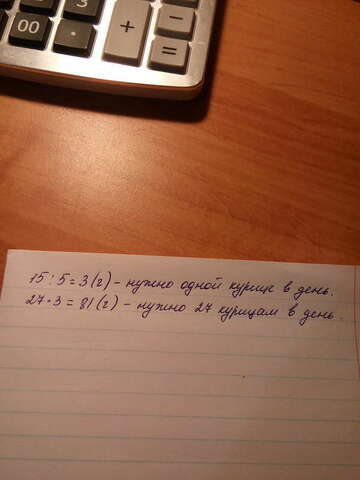 3
00
.
+
−
=
15 : 5 = 3 (г) - нужно одной курице в день.
27 · 3 = 81 (г) - нужно 27 курицам в день.